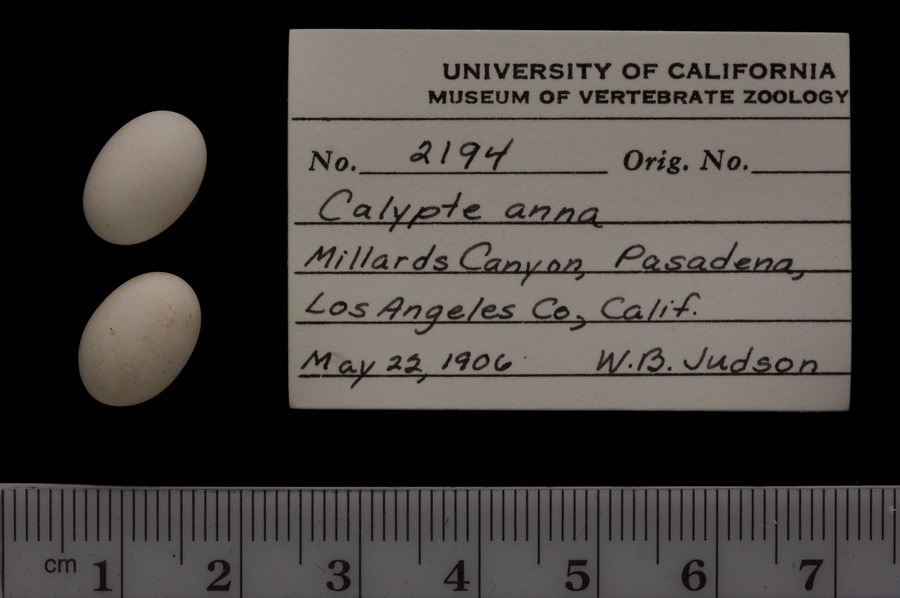 UNIVERSITY OF CALIFORNIA
MUSEUM OF VERTEBRATE ZOOLOGY
No. 2194 Orig. No.
Calypte anna
Millards Canyon, Pasadena,
Los Angeles Co, Calif.
May 22, 1906 W.B. Judson
cm 1 2 3 4 5 6 7